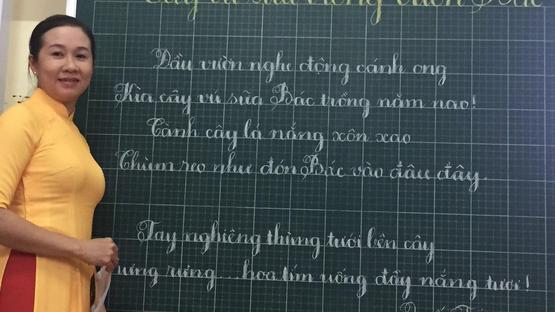 Cây vú sữa trong vườn Bác
Đầu vườn nghe động cánh ong
Kìa cây vú sữa Bác trồng năm nao!
Cành cây lá nắng xôn xao
Chùm reo như đón Bác vào đâu đây.
Tay nghiêng thùng tưới bên cây
ưng rưng...hoa tím uống đầy nắng tươi!